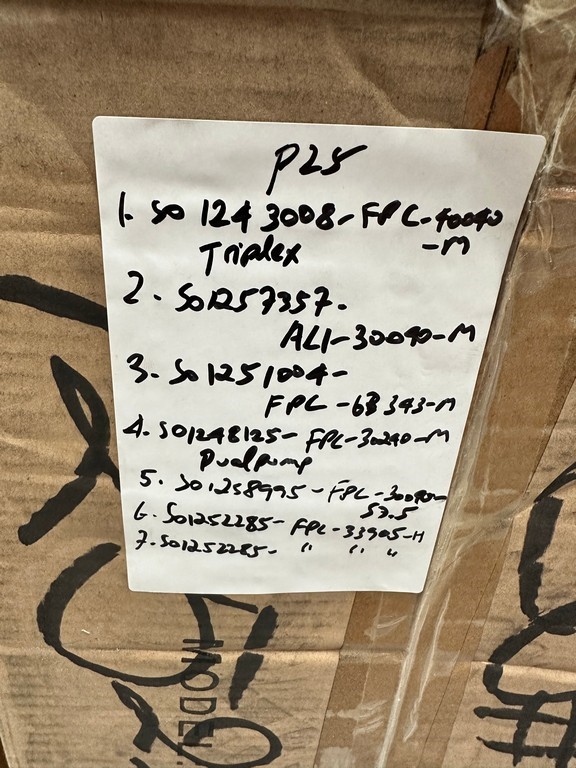 P25
1. SO 1243008-FPC-40040
-M
Triplex
2. SO1257357.
ALI-30040-M
3. SO1251004-
FPC-6B343-M
4. SO1248125-FPC-30240-M
Dualpump
5. SO1258995-FPC-30040-
S2.5
6. SO1252285-FPC-33905-H
7. SO1252285- " " "
MODEL: